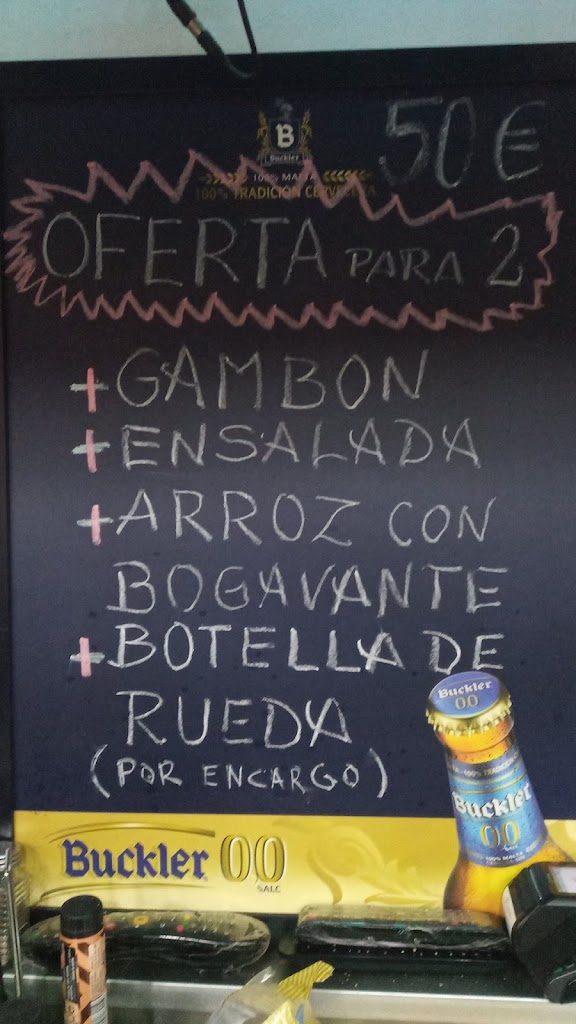 B
Buckler
100% MALTA
100% TRADICIÓN CERVECERA
50€
OFERTA PARA 2
+GAMBON
+ENSALADA
+ARROZ CON
BOGAVANTE
+BOTELLA DE
RUEDA
(POR ENCARGO)
Buckler
0,0
Buckler
0,0
Buckler 0,0
SALC